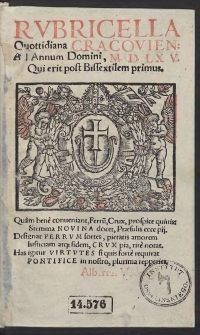 RVBRICELLA
Quottidiana CRACOVIEN:
Ad Annum Domini, M D LX V.
Qui erit post Bissextilem primus.
Quàm benè conveniant, Ferrũ, Crux, prospice quæso
Stemma NOVINA docet, Præsulis ecce pij.
Designat FERRVM fortes, pietatis amorem
Iustitiam atq; fidem, CRVX pia, ritè notat.
Has igitur VIRTVTES si quis fortè requirat
PONTIFICE in nostro, plurima reperiet.
14.576
INSTYTUT